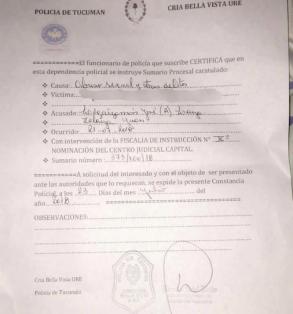 POLICIA DE TUCUMAN
CRIA BELLA VISTA URE
============El funcionario de policía que suscribe CERTIFICA que en
esta dependencia policial se instruye Sumario Procesal caratulado:
Causa: Abuso sexual y otros delitos
Víctima:
Acusado:
Ocurrido: 21-07-2018
Con intervención de la FISCALIA DE INSTRUCCIÓN N° X°
NOMINACIÓN DEL CENTRO JUDICIAL CAPITAL
Sumario número: 573/ /18
============A solicitud del interesado y con el objeto de ser presentado
ante las autoridades que lo requieran, se expide la presente Constancia
Policial, a los 23 Días del mes Julio del
año 2018
OBSERVACIONES:
Cria Bella Vista URE
Policía de Tucumán